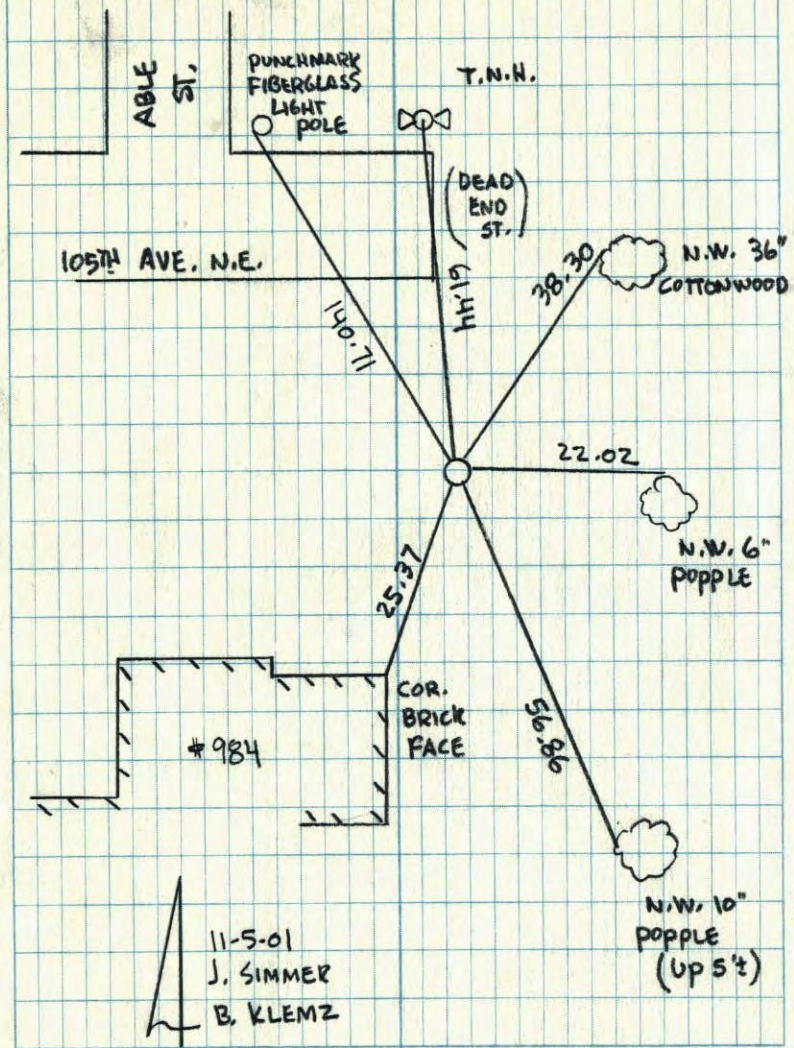 ABLE ST.
PUNCHMARK
FIBERGLASS
LIGHT
POLE
T.N.H.
(DEAD
END
ST.)
105TH AVE. N.E.
140.71
61.44
38.30
N.W. 36"
COTTONWOOD
22.02
N.W. 6"
POPPLE
25.37
COR.
BRICK
FACE
#984
56.86
N.W. 10"
POPPLE
(UP 5'±)
11-5-01
J. SIMMER
B. KLEMZ